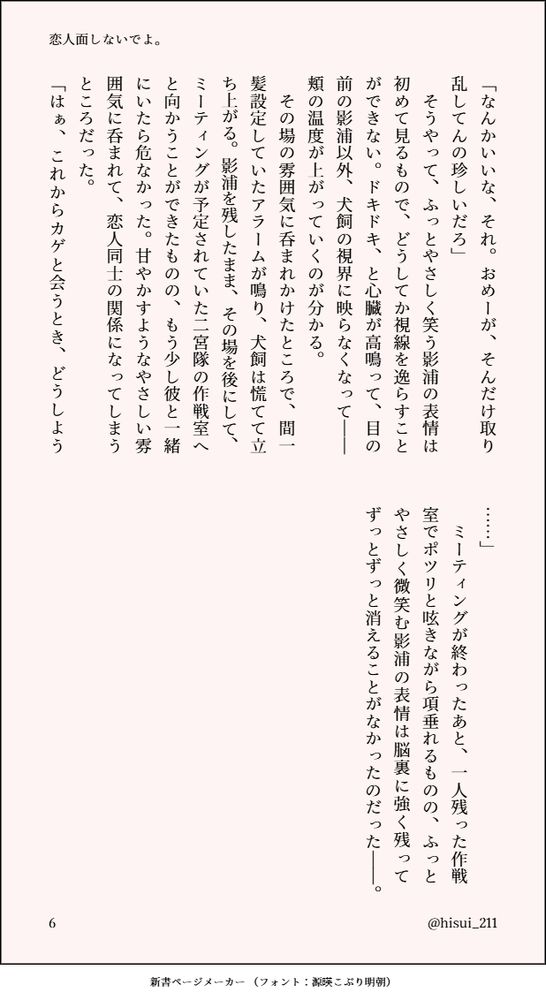 恋人面しないでよ。
「なんかいいな、それ。おめーが、そんだけ取り
乱してんの珍しいだろ」
　そうやって、ふっとやさしく笑う影浦の表情は
初めて見るもので、どうしてか視線を逸らすこと
ができない。ドキドキ、と心臓が高鳴って、目の
前の影浦以外、犬飼の視界に映らなくなって――
頬の温度が上がっていくのが分かる。
　その場の雰囲気に呑まれかけたところで、間一
髪設定していたアラームが鳴り、犬飼は慌てて立
ち上がる。影浦を残したまま、その場を後にして、
ミーティングが予定されていた二宮隊の作戦室へ
と向かうことができたものの、もう少し彼と一緒
にいたら危なかった。甘やかすようなやさしい雰
囲気に呑まれて、恋人同士の関係になってしまう
ところだった。
「はぁ、これからカゲと会うとき、どうしよう
……」
　ミーティングが終わったあと、一人残った作戦
室でポツリと呟きながら項垂れるものの、ふっと
やさしく微笑む影浦の表情は脳裏に強く残って
ずっとずっと消えることがなかったのだった――。
6
@hisui_211
新書ページメーカー（フォント：源暎こぶり明朝）